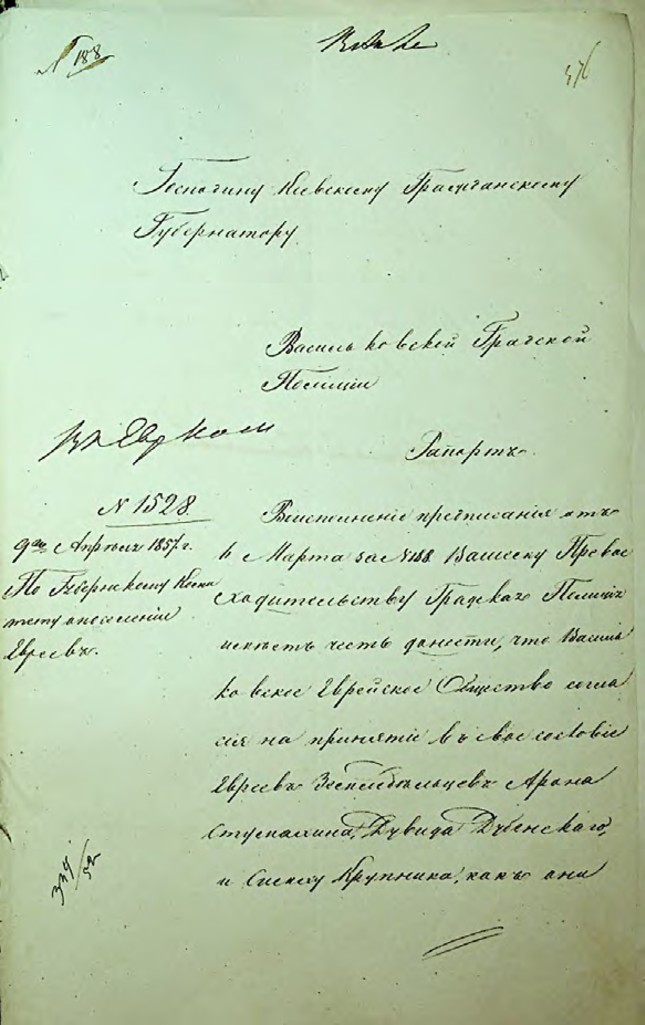 № 188
376
Господину Киевскому Гражданскому
Губернатору
Васильковской Градской
Полиции
Рапортъ.
№ 1528
9го Апреля 1857 г.
По Губернскому Коми
тету о поселении
Евреевъ.
Во исполнение предписания отъ
6 Марта за № 188 Вашему Превос
ходительству Градская Полиция
имеетъ честь донести, что Василь
ковское Еврейское Общество согла
сия на принятие въ свое сословие
Евреевъ Земледельцевъ Арона
Дувида Дубенского,
и Крупника, какъ они